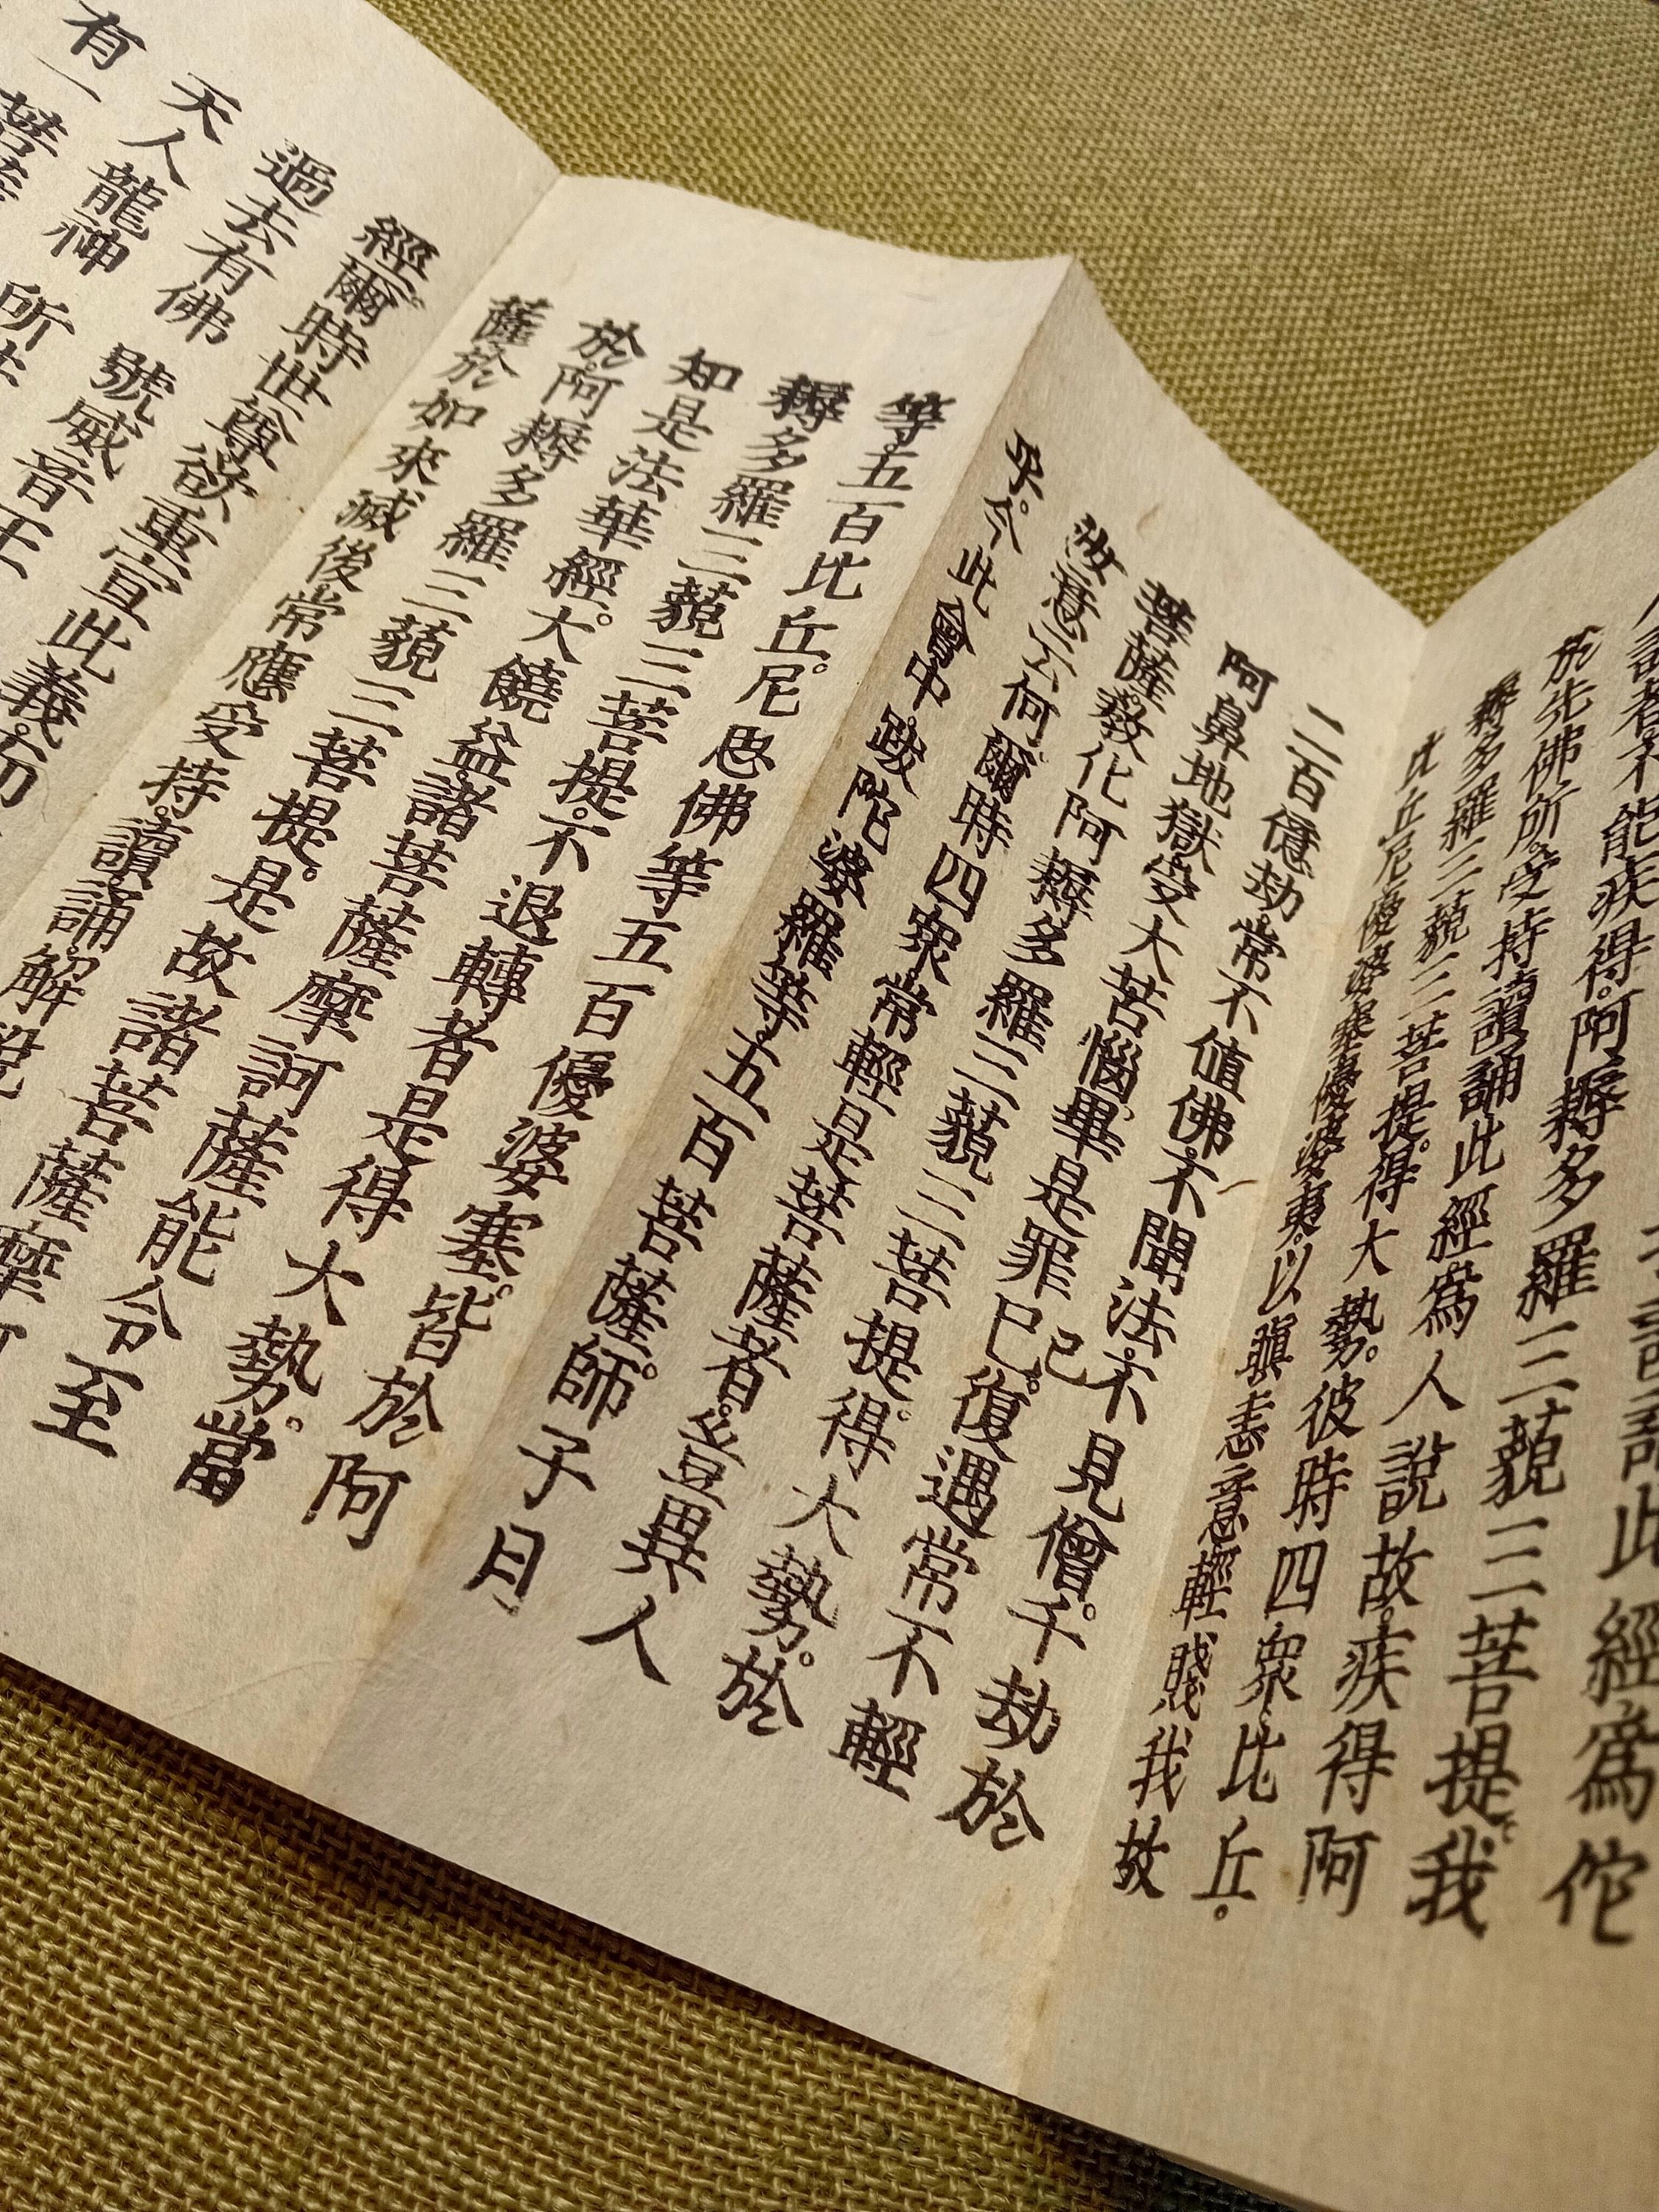 讀誦此經爲佗
人說者不能疾得。阿耨多羅三藐三菩提。我
於先佛所受持讀誦此經爲人說故疾得阿
耨多羅三藐三菩提。得大勢。彼時四衆比丘。
比丘尼優婆塞優婆夷以瞋恚意輕賤我故
二百億劫常不值佛不聞法不見僧。千劫於
阿鼻地獄受大苦惱畢是罪已。復遇常不輕
己
菩薩敎化阿耨多羅三藐三菩提。得大勢。於
汝意云何爾時四衆常輕是菩薩者豈異人
乎。今此會中跋陀婆羅等五百菩薩。師子月
等五百比丘。尼思佛等五百優婆塞。皆於阿
耨多羅三藐三菩提不退轉者是得大勢。當
知是法華經。大饒益諸菩薩摩訶薩能令至
於阿耨多羅三藐三菩提。是故諸菩薩摩
薩於如來滅後常應受持讀誦解說
經爾時世尊欲重宣此義而
過去有佛 號威音王
天人龍神 所
有一 菩薩